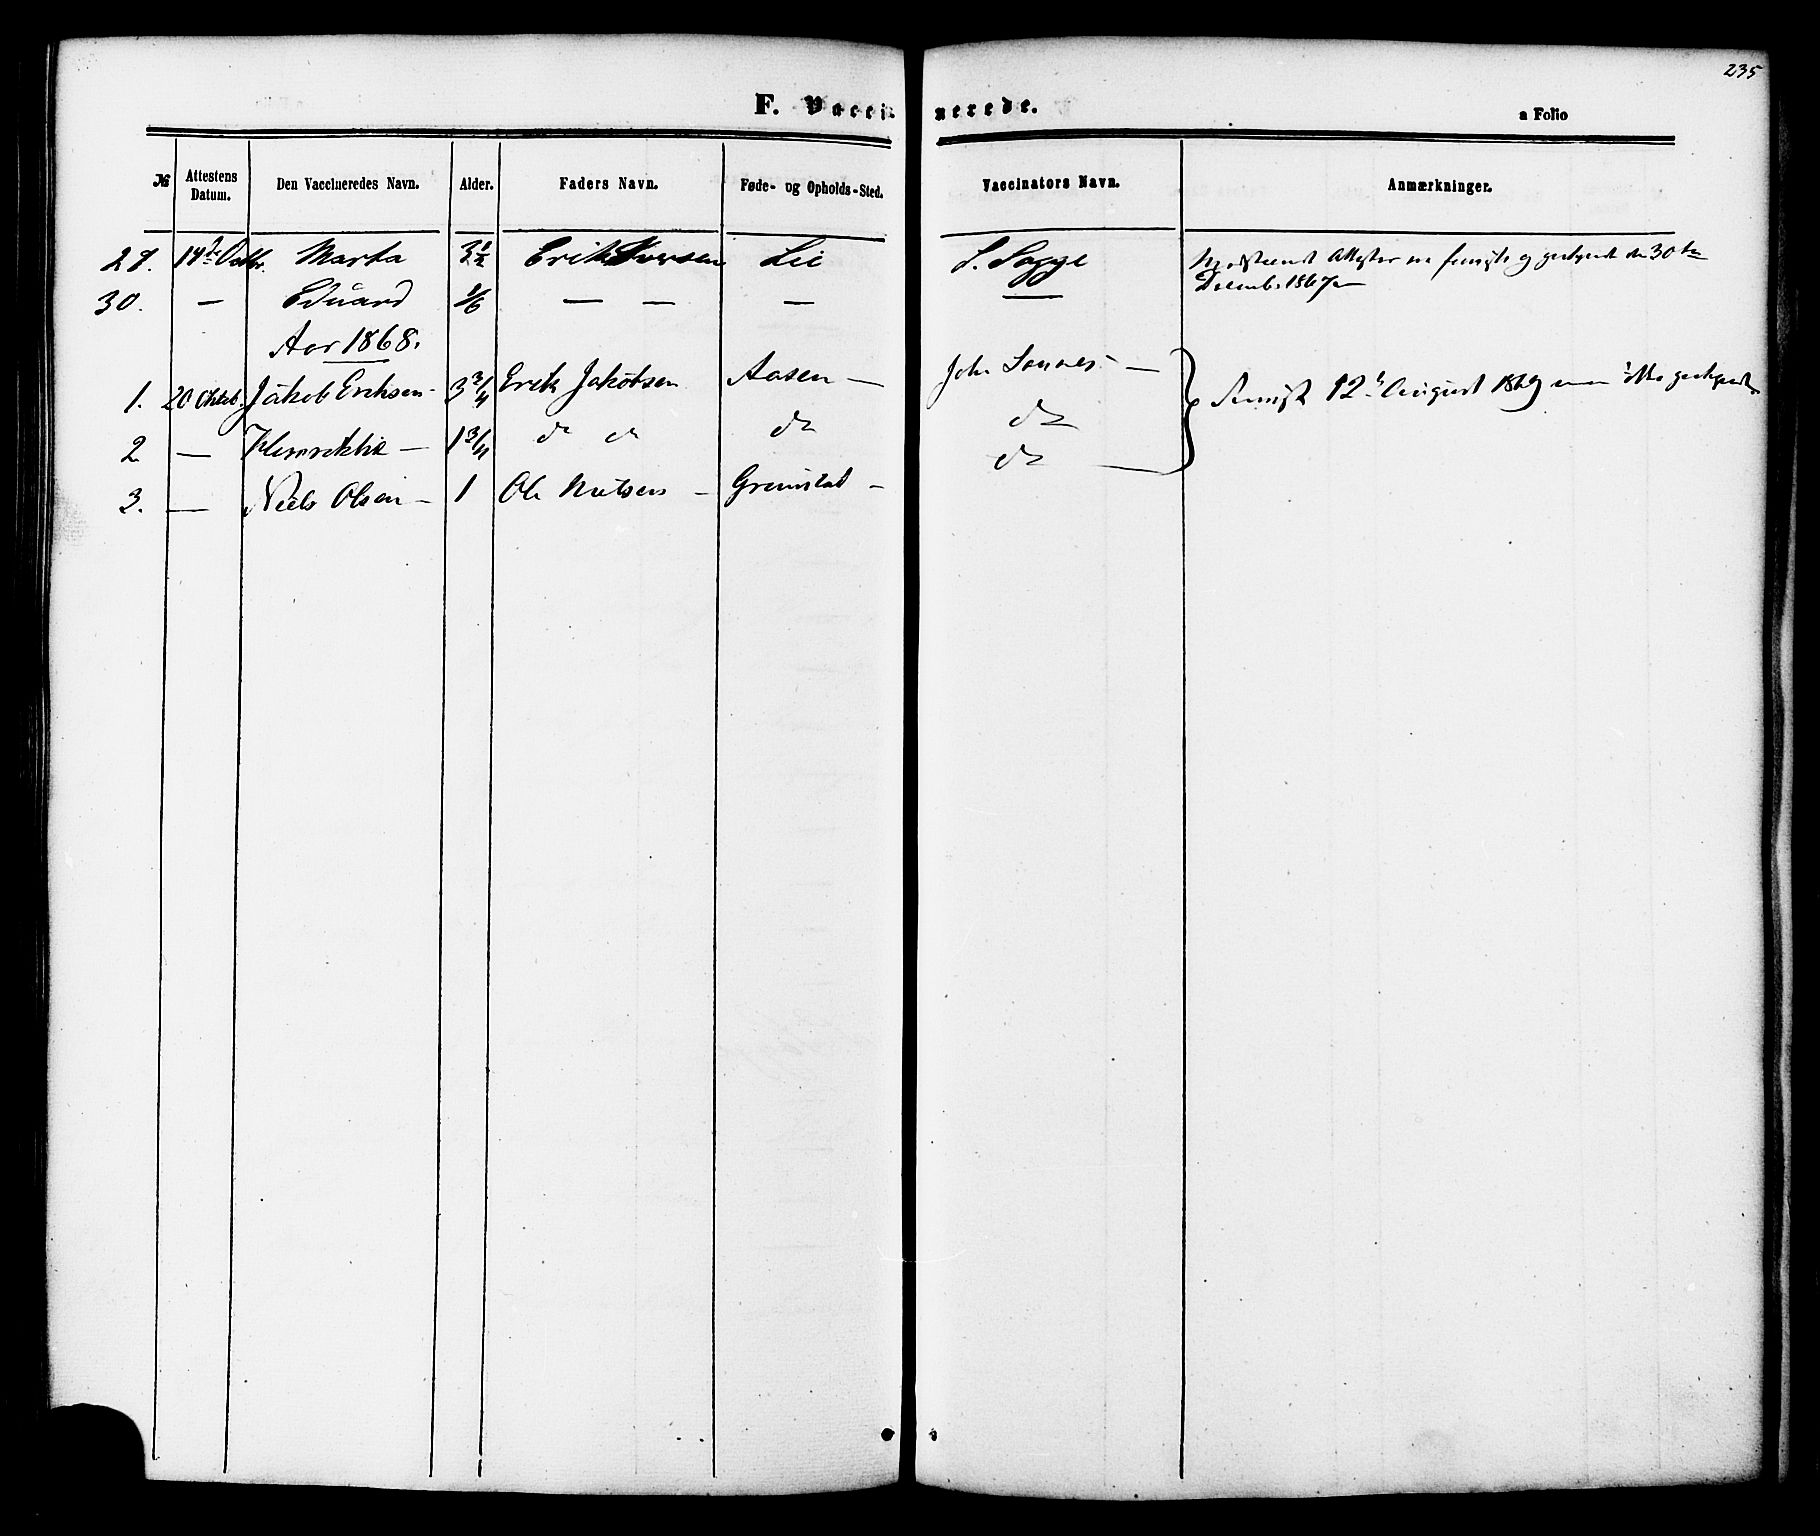 235
F. Vaccinerede.
a Folio
№ Attestens Datum. Den Vaccineredes Navn. Alder. Faders Navn. Føde- og Opholds-Sted. Vaccinators Navn. Anmærkninger.
29. 14de Octbr. Marta 3½ Erik Iversen Lie S. Sagge den 30te
December 1867
30. — Eduard 1/6 — — —
Aar 1868.
1. 20 Oktob. Jakob Eriksen — 3 3/4 Erik Jakobsen Aasen — John — 12 August 1869 ikke
2 — — 1 3/4 do do do do
3. — Niels Olsen — 1 Ole — Grimstad — do —